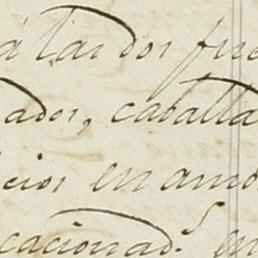 á las dos fue
ados, caballa
cios en amo
cacionad.s en